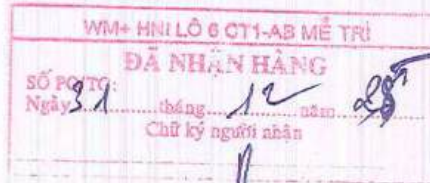 WM+ HNI LÔ 6 CT1-AB MỄ TRÌ
ĐÃ NHẬN HÀNG
SỐ PO/TO:
Ngày 31 tháng 12 năm 25
Chữ ký người nhận